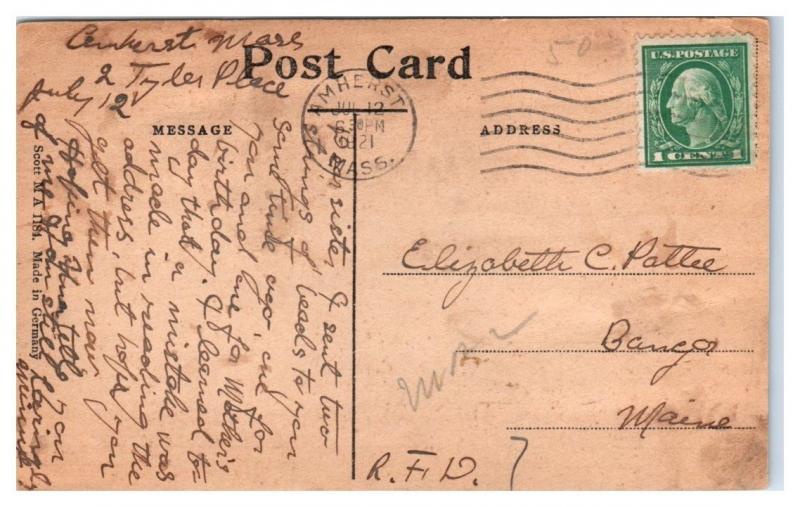 Amherst Mass
2 Tyler Place
July 12
Post Card
U.S. POSTAGE
1 CENT 1
50
AMHERST
JUL 12
6 30 PM
1921
MASS.
MESSAGE
ADDRESS
sister I sent two
strings of beads to you
some time ago, one for
you and one for Mother's
birthday. I learned to-
day that a mistake was
made in reading the
address, but hope you
get them now
Hoping you
of me
Lovingly
Elizabeth C. Pattee
Bangor
Maine
R.F.D. 7
Scott M A 1184. Made in Germany